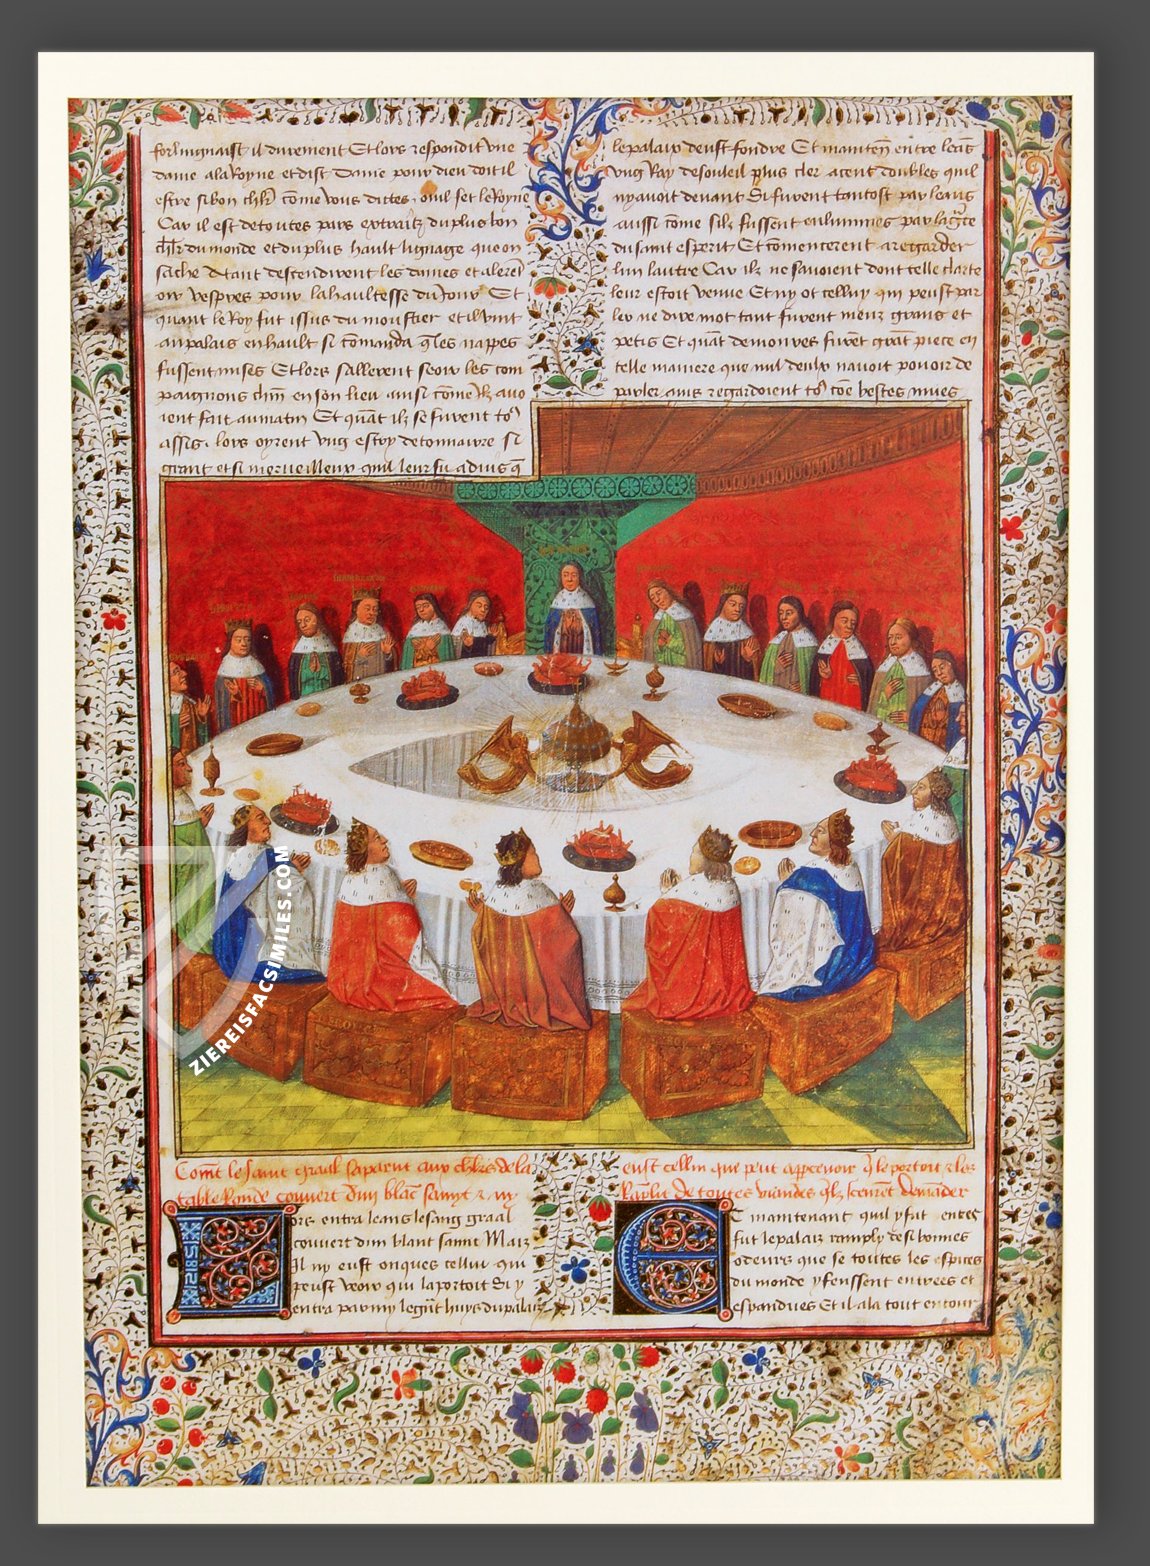 forlingnaist il durement Et lors respondit une
dame a la Royne et dist Dame pour dieu doit il
estre si bon chlr come vous dictes ouil fet le Royne
Car il est de toutes pars extrait du plus bon
chlr du monde et du plus hault lignage que on
sache Atant descendirent les dames et alerent
oir vespres pour la haultesse du Jour Et
quant le Roy fut issus du moustier et il vint
au palais en hault si comanda q les nappes
fussent mises Et lors sallerent seoir les com
paignons chun en son lieu ausi come ilz auo
ient fait au matin Et quat ilz se furent to9
assis lors oyrent vng estoy de tonnairre si
grant et si merueilleux quil leur fu aduis q
le palais deust fondre Et mainten entre leas
vng Ray de souleil plus cler a cent doubles quil
nyauoit deuant Si furent tantost par leans
aussi come silz fussent enluminés par la gre
du saint esperit Et comencerent a regarder
lun lautre Car ilz ne sauoient dont telle clarte
leur estoit venue Et ny ot celluy qui peust par
ler ne dire mot tant furent menz grans et
petis Et quat demoures furet grat piece en
telle maniere que nul deulx nauoit pouoir de
parler ains regardoient to9 coe bestes mues
Comt le saint graal saparut aux chlrs de la
table Ronde couuert dun blac samyt z ny
eust cellui que peut appceuoir q le portoit z les
Raplit de toutes viandes qlz sceuret demader
Lors entra leans le sang graal
couuert dun blant samit Maiz
Il ny eust onques cellui qui
peust veoir qui la portoit Si y
entra parmy le grat huys du palais
Et maintenant quil y fut entes
fut le palaixramply des bonnes
odeurs que se toutes les espices
du monde y feussent entrees et
espandues Et il ala tout entour
ZIEREISFACSIMILES.COM